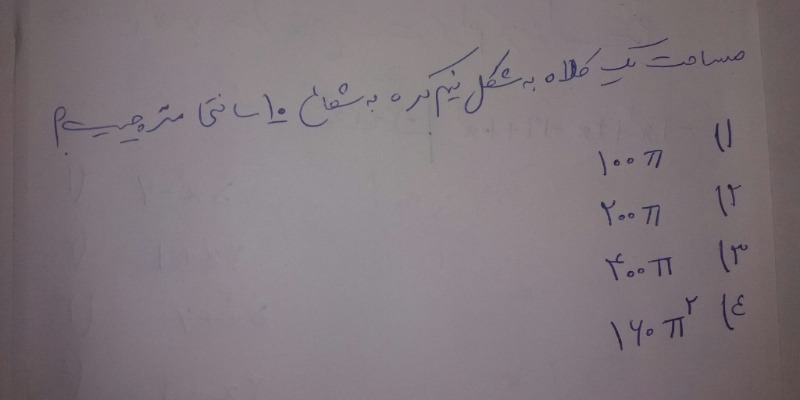 مساحت یک کلاه به شکل نیم کره به شعاع ۱۰ سانتی متر چیست؟
۱) ۱۰۰π
۲) ۲۰۰π
۳) ۴۰۰π
٤) ۱۶۰π^۲